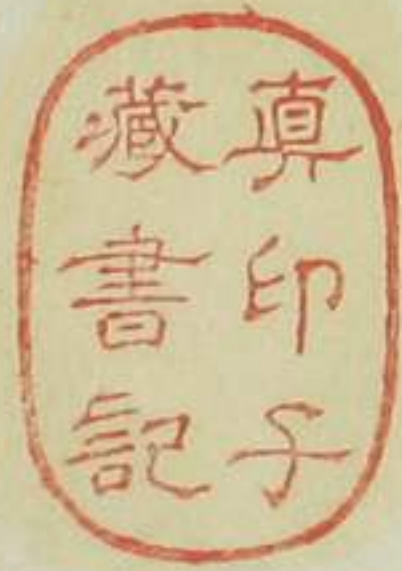 真印子
藏書記